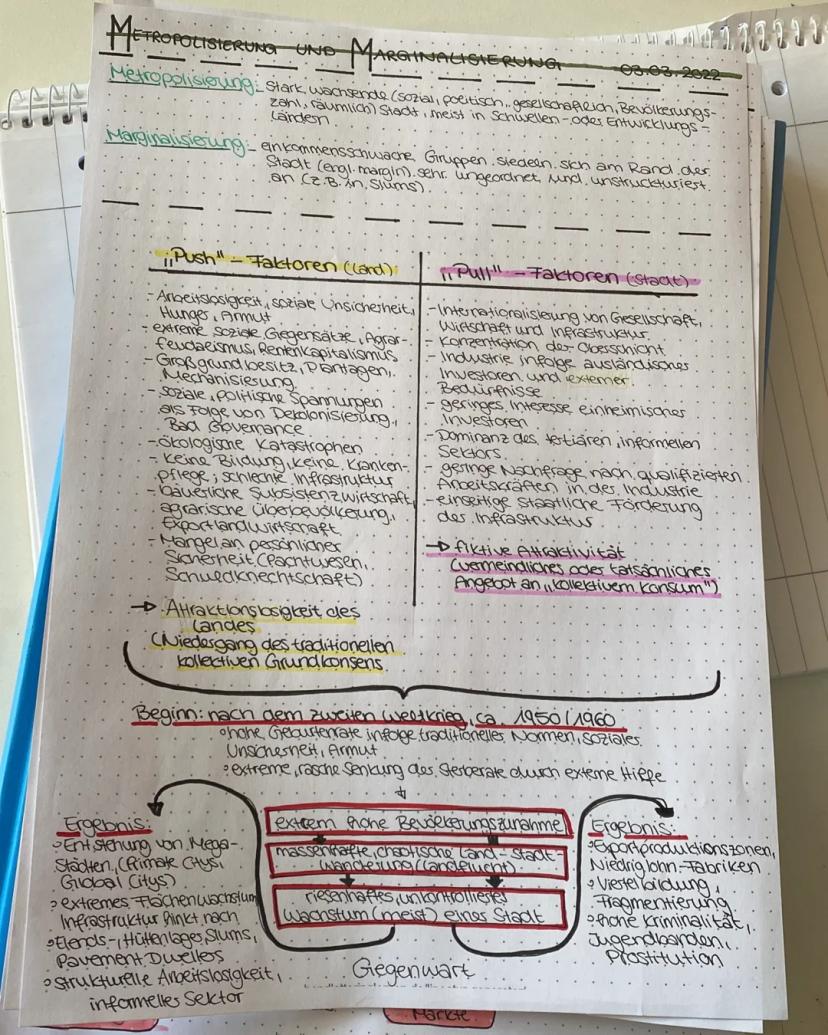 METROPOLISIERUNG UND MARGINALISIERUNG 03.03.2022
Metropolisierung: stark wachsende (sozial, politisch, gesellschaftlich, Bevölkerungs-
zahl, räumlich) Stadt, meist in Schwellen- oder Entwicklungs-
ländern
Marginalisierung: einkommensschwache Gruppen siedeln sich am Rand der
Stadt (engl. margin) sehr ungeordnet und unstrukturiert
an (z.B. in Slums)
„Push" - Faktoren (Land)
- Arbeitslosigkeit, soziale Unsicherheit,
Hunger, Armut
- extreme soziale Gegensätze, Agrar-
feudalismus, Rentenkapitalismus
- Großgrundbesitz, Plantagen,
Mechanisierung
- soziale, politische Spannungen
als Folge von Dekolonisierung,
Bad Governance
- ökologische Katastrophen
- keine Bildung, keine Kranken-
pflege, schlechte Infrastruktur
- bäuerliche Subsistenzwirtschaft,
agrarische Überbevölkerung,
Exportlandwirtschaft
- Mangel an persönlicher
Sicherheit (Pachtwesen,
Schuldknechtschaft)
→ Attraktionslosigkeit des
Landes
(Niedergang des traditionellen
kollektiven Grundkonsens
„Pull" - Faktoren (Stadt)
- Internationalisierung von Gesellschaft,
Wirtschaft und Infrastruktur
- Konzentration der Oberschicht
- Industrie infolge ausländischer
Investoren und externer
Bedürfnisse
- geringes Interesse einheimischer
Investoren
- Dominanz des tertiären, informellen
Sektors
- geringe Nachfrage nach qualifizierten
Arbeitskräften in der Industrie
- einseitige staatliche Förderung
der Infrastruktur
→ fiktive Attraktivität
(vermeindliches oder tatsächliches
Angebot an „kollektivem Konsum")
Beginn: nach dem zweiten Weltkrieg, ca. 1950/1960
◦ hohe Geburtenrate infolge traditioneller Normen, sozialer
Unsicherheit, Armut
◦ extreme, rasche Senkung der Sterberate durch externe Hilfe
↓
extrem hohe Bevölkerungszunahme
massenhafte, chaotische Land-Stadt-
Wanderung (Landflucht)
riesenhaftes, unkontrolliertes
Wachstum (meist) einer Stadt
Gegenwart
Ergebnis:
◦ Entstehung von Mega-
Städten, (Primate Citys,
Global Citys)
◦ extremes Flächenwachstum,
Infrastruktur hinkt nach
◦ Elends-, Hüttenlager, Slums,
Pavement Dwellers
◦ strukturelle Arbeitslosigkeit,
informeller Sektor
Ergebnis:
◦ Exportproduktionszonen,
Niedriglohn-Fabriken
◦ Viertelbildung,
Fragmentierung
◦ hohe Kriminalität,
Jugendbanden,
Prostitution
Märkte